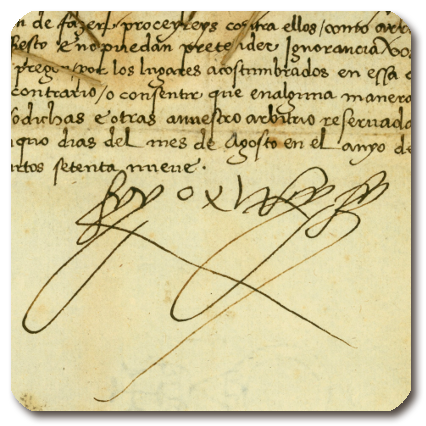 de fazer proceyreys contra ellos/como
Resto e no puedan pretender Ignorancia
pregon/por los lugares acostumbrados en essa
contrario/o consentir que en alguna manera
e otras a nuestro arbitrio reseruada
dias del mes de Agosto en el anyo de
setenta nueve.